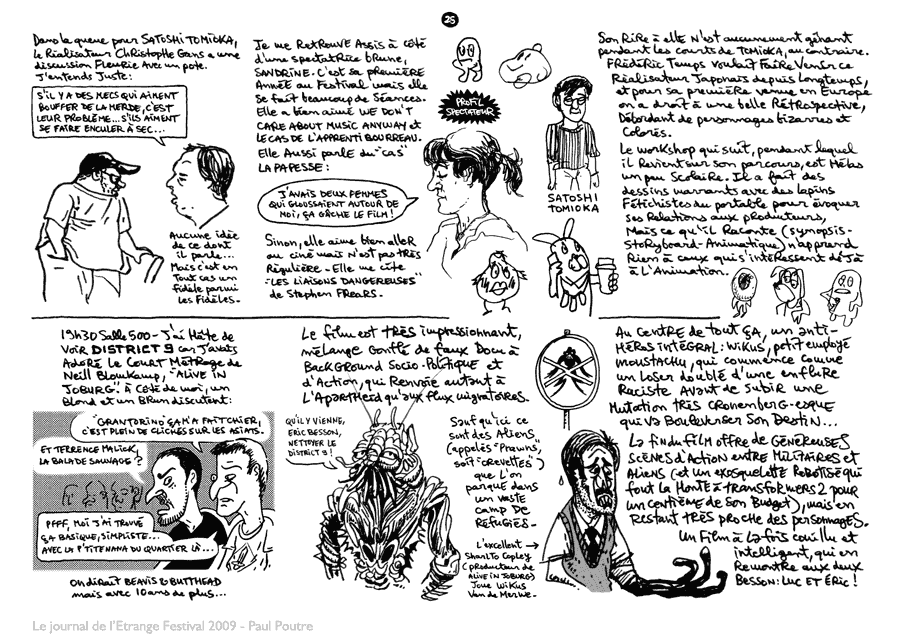 25
Dans la queue pour SATOSHI TOMIOKA,
le Réalisateur Christophe Gans a une
discussion Fleurie avec un pote.
J'entends Juste:
S'IL Y A DES MECS QUI AIMENT
BOUFFER DE LA MERDE, C'EST
LEUR PROBLÈME... S'ILS AIMENT
SE FAIRE ENCULER À SEC...
Aucune idée
de ce dont
il parle...
Mais c'est en
Tout cas un
fidèle parmi
les Fidèles.
Je me Retrouve Assis à côté
d'une spectatrice brune,
SANDRINE. C'est sa première
Année au Festival mais elle
se fait beaucoup de Séances.
Elle a bien aimé WE DON'T
CARE ABOUT MUSIC ANYWAY et
LE CAS DE L'APPRENTI BOURREAU.
Elle Aussi parle du "cas"
LA PAPESSE:
J'AVAIS DEUX FEMMES
QUI GLOUSSAIENT AUTOUR DE
MOI, ÇA GÂCHE LE FILM!
Sinon, elle aime bien aller
au ciné mais n'est pas très
Régulière - Elle me cite
"LES LIAISONS DANGEREUSES"
de Stephen Frears.
PROFIL
SPECTATEUR
SATOSHI
TOMIOKA
Son Rire à elle n'est aucunement gênant
pendant les courts de TOMIOKA, au contraire.
Frédéric Temps voulait Faire Venir ce
Réalisateur Japonais depuis Longtemps,
et pour sa première venue en Europe
on a droit à une belle Rétrospective,
Débordant de personnages bizarres et
Colorés.
Le workshop qui suit, pendant lequel
il Revient sur son parcours, est Hélas
un peu Scolaire. Il a fait des
dessins marrants avec des lapins
Fétichistes du portable pour évoquer
ses Relations aux producteurs,
Mais ce qu'il Raconte (synopsis-
Storyboard-Animatique) n'apprend
Rien à ceux qui s'intéressent déjà
à l'Animation.
19h30 Salle 500 - J'ai Hâte de
Voir DISTRICT 9 car J'avais
Adoré Le Court Métrage de
Neill Blomkamp, "ALIVE IN
JOBURG". à Côté de moi, un
Blond et un Brun discutent:
"GRAN TORINO" ÇA M'A FAIT CHIER,
C'EST PLEIN DE CLICHÉS SUR LES ASIATS.
ET TERRENCE MALICK,
LA BALADE SAUVAGE?
PFFF, MOI J'AI TROUVÉ
ÇA BASIQUE, SIMPLISTE...
AVEC LA P'TITE NANA DU QUARTIER LÀ...
On dirait BEAVIS & BUTTHEAD
mais avec 10 ans de plus...
Le film est TRÈS impressionnant,
mélange gonflé de faux Docu à
BackGround Socio-Politique et
d'Action, qui Renvoie autant à
l'Apartheid qu'aux flux migratoires.
QU'IL Y VIENNE,
ERIC BESSON,
NETTOYER LE
DISTRICT 9!
Sauf qu'ici ce
sont des Aliens
(appelés "Prawns",
soit "crevettes")
que l'on
parque dans
un vaste
camp DE
Réfugiés.
L'excellent →
Sharlto Copley
(producteur de
ALIVE IN JOBURG)
Joue Wikus
Van de Merwe.
Au centre de tout ça, un anti-
Héros intégral: Wikus, petit employé
moustachu, qui commence comme
un Loser doublé d'une enflure
Raciste Avant de Subir une
Mutation très Cronenberg-esque
qui va Bouleverser Son Destin...
La fin du film offre de généreuses
scènes d'action entre Militaires et
Aliens (et un exosquelette Robotisé qui
fout la Honte à TRANSFORMERS 2 pour
un centième de Son Budget), mais en
Restant TRÈS proche des personnages.
Un Film à la fois couillu et
intelligent, qui en
Remontre aux deux
Besson: Luc et Éric!
Le journal de l'Etrange Festival 2009 - Paul Poutre